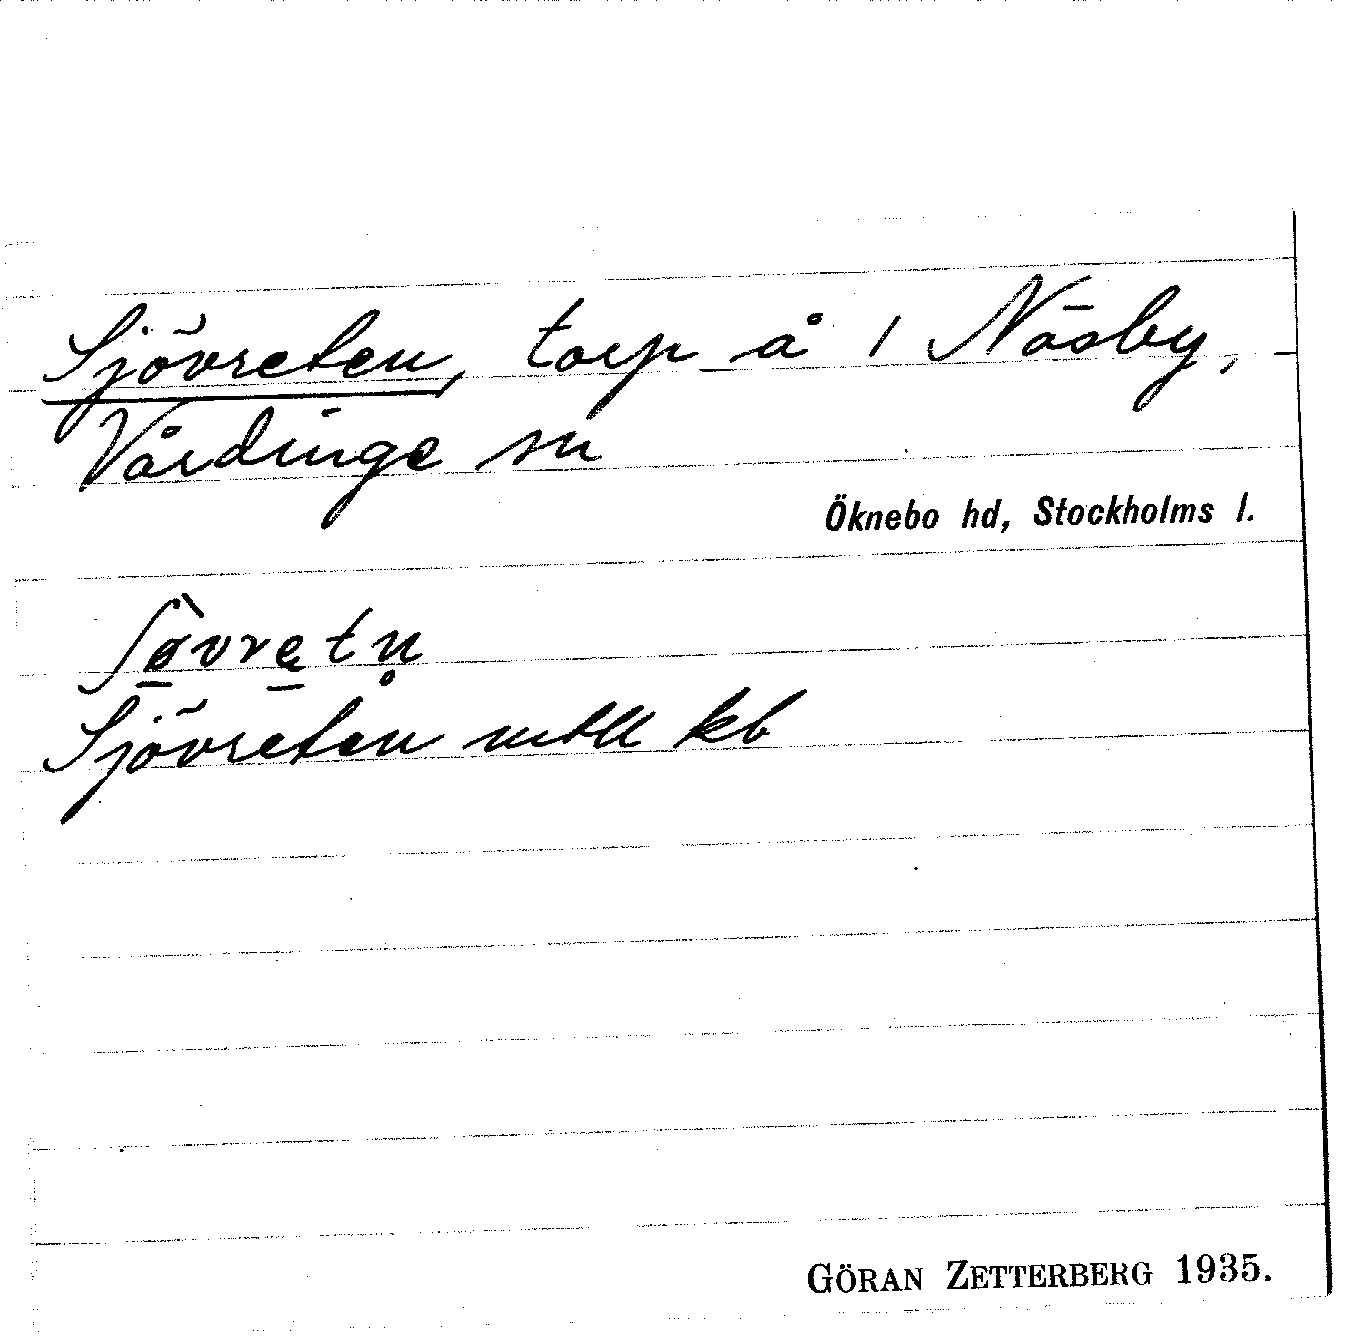 Sjövreten, torp å 1 Näsby,
Vårdinge sn
Öknebo hd, Stockholms l.
ʃø̠̀vrę̠tn̥
Sjövreten mtll kb
GÖRAN ZETTERBERG 1935.